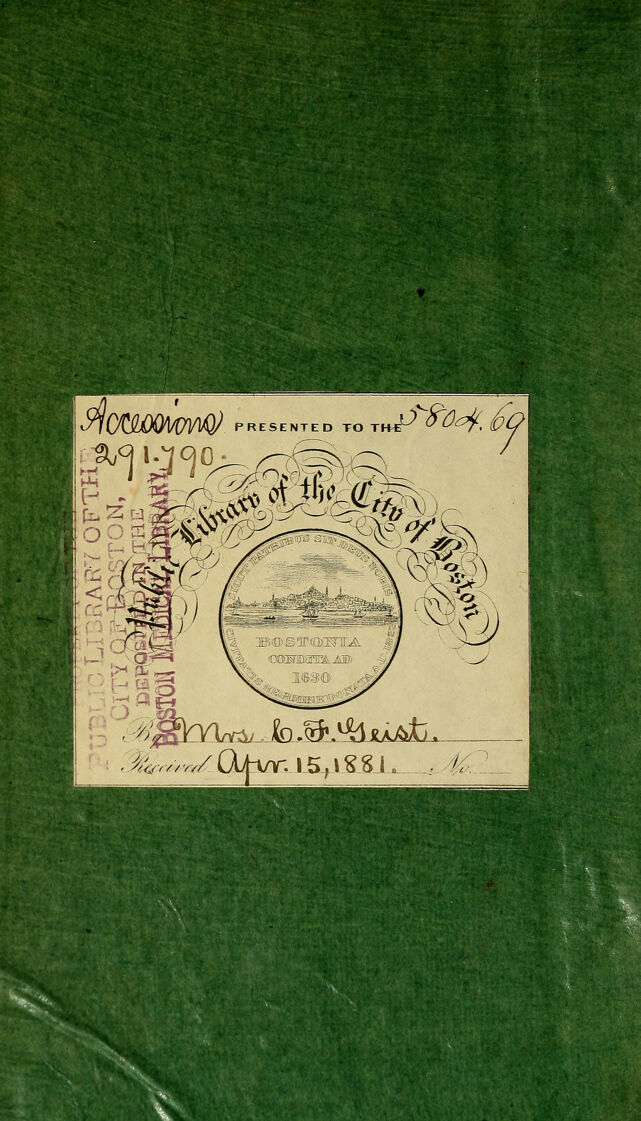 Accessions
PRESENTED TO THE
5804.69
291.790.
Public Library of the City of Boston
SICUT PATRIBUS SIT DEUS NOBIS
BOSTONIA
CONDITA AD
1630
CIVITATIS REGIMINE DONATA A.D.
By Mrs. C. F. Geist.
Received Apr. 15, 1881. No.
PUBLIC LIBRARY OF THE
CITY OF BOSTON,
DEPOSITED IN THE
BOSTON MEDICAL LIBRARY,